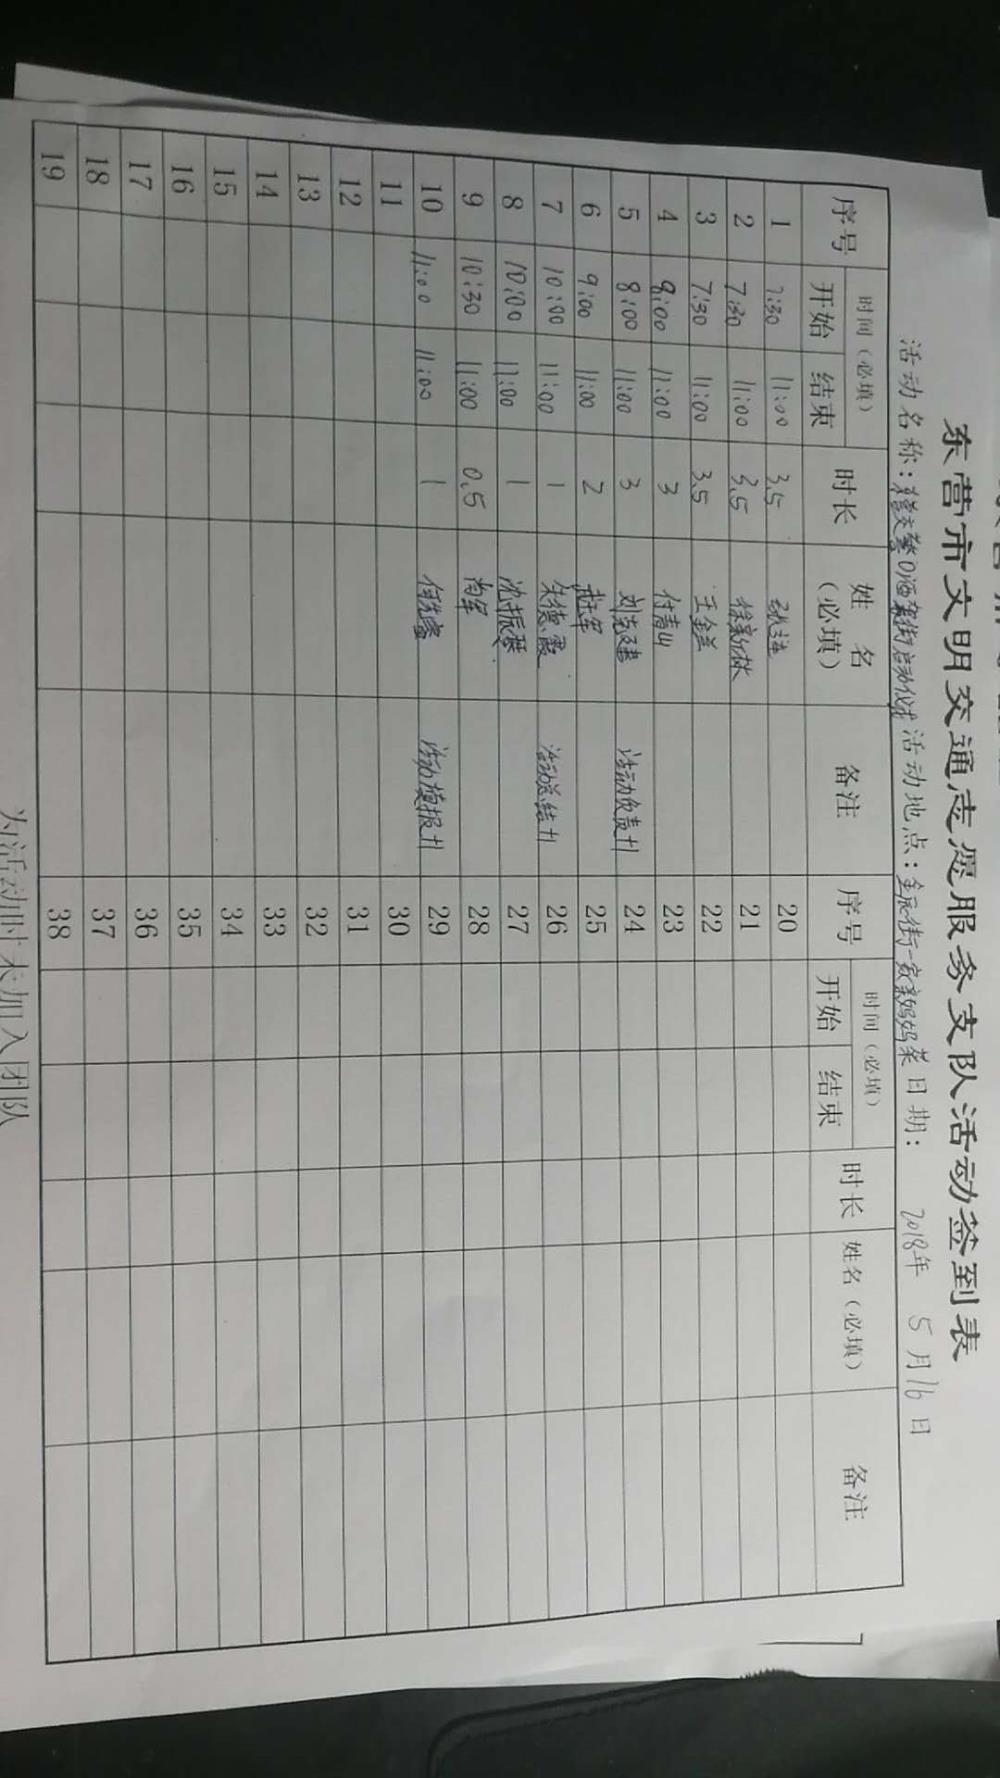 东营市文明交通志愿服务支队活动签到表
活动名称： 活动地点： 日期：2018年 5月16日
序号 时间（必填） 时长 姓名（必填） 备注 序号 时间（必填） 时长 姓名（必填） 备注
开始 结束 开始 结束
1 7:30 11:00 3.5 20
2 7:30 11:00 3.5 徐新林 21
3 7:30 11:00 3.5 王金兰 22
4 8:00 11:00 3 付青山 23
5 8:00 11:00 3 刘志建 活动负责+1 24
6 9:00 11:00 2 25
7 10:00 11:00 1 朱德霞 活动总结+1 26
8 10:00 11:00 1 沈振琴 27
9 10:30 11:00 0.5 尚军 28
10 11:00 11:00 1 29
11 30
12 31
13 32
14 33
15 34
16 35
17 36
18 37
19 38
为活动时未加入团队